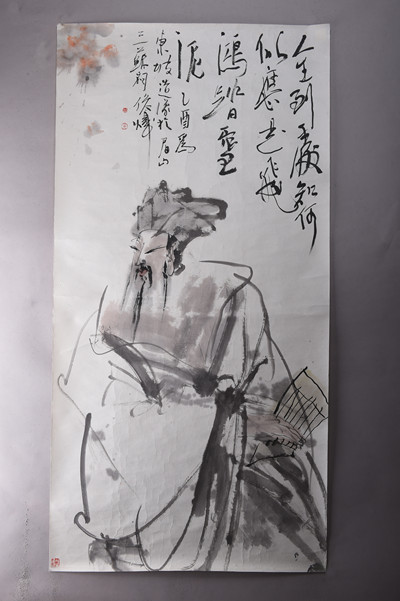 人生到處知何
似應是飛
鴻踏雪
泥 乙酉為
東坡造像於眉山
三蘇祠